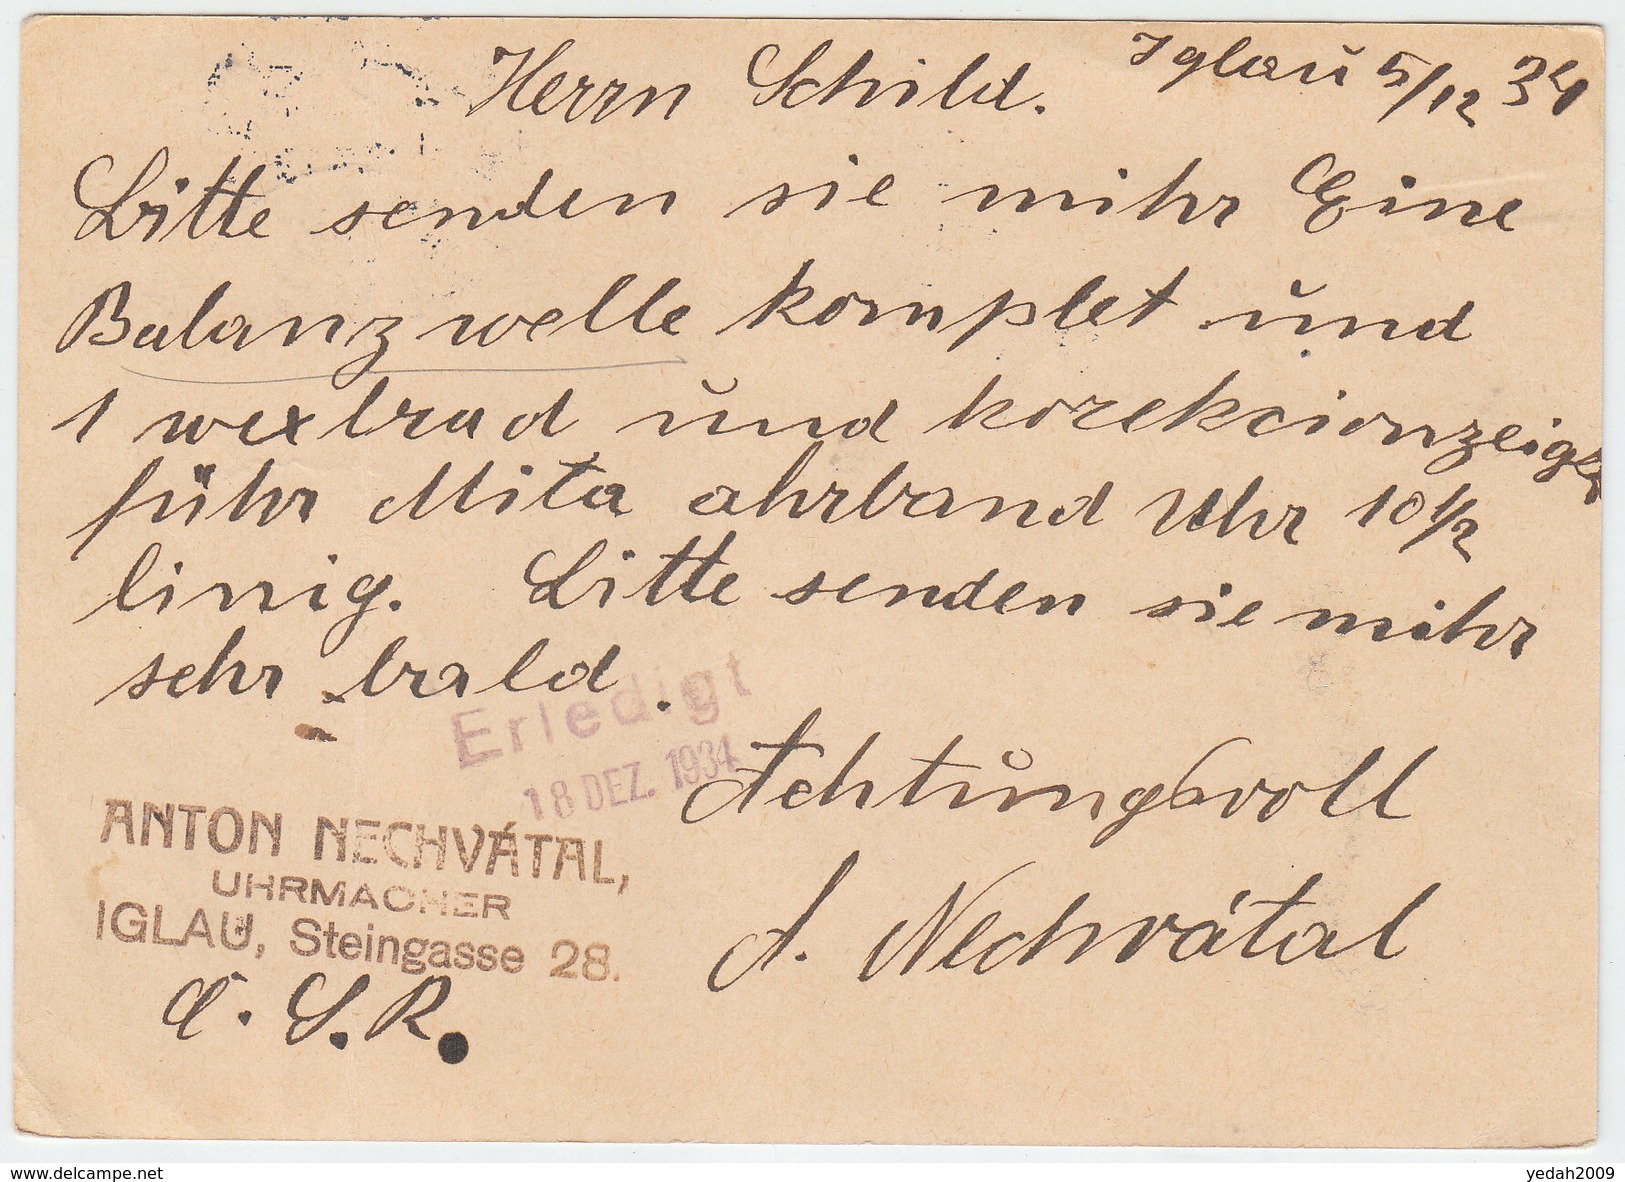 Iglaŭ 5/12 34
Herrn Schild.
Bitte senden sie mihr Eine
Balanzwelle komplet ŭnd
1 wexlrad ŭnd korekcionzeiger
führ Mita ahrband Uhr 10 1/2
linig. Bitte senden sie mihr
sehr bald.
Erledigt
18 DEZ. 1934
Achtŭngsvoll
A. Nechvátal
ANTON NECHVÁTAL,
UHRMACHER
IGLAU, Steingasse 28.
Č. S. R.
www.delcampe.net
yedah2009